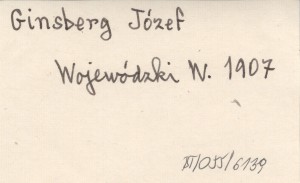 Ginsberg Józef
Wojewódzki W. 1907
/055/6139